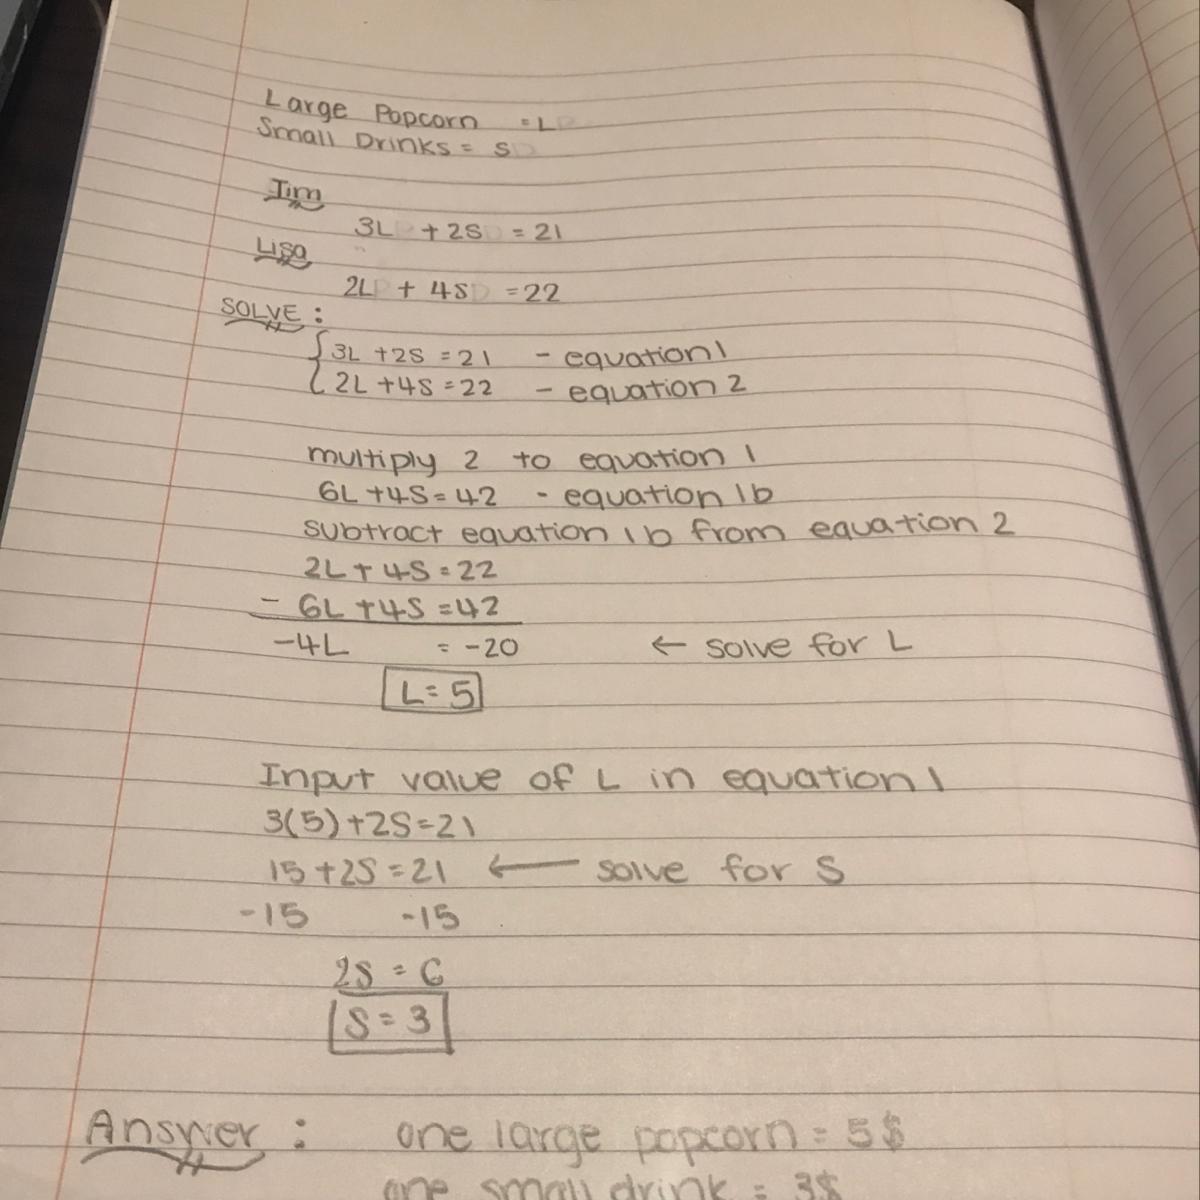 Large Popcorn = L
Small Drinks = S
Jim
3L + 2S = 21
Lisa
2L + 4S = 22
SOLVE :
3L + 2S = 21 - equation 1
2L + 4S = 22 - equation 2
multiply 2 to equation 1
6L + 4S = 42 - equation 1b
subtract equation 1b from equation 2
2L + 4S = 22
- 6L + 4S = 42
-4L = -20 ← solve for L
L = 5
Input value of L in equation 1
3(5) + 2S = 21
15 + 2S = 21 ← solve for S
-15 -15
2S = 6
S = 3
Answer : one large popcorn = 5$
one small drink = 3$